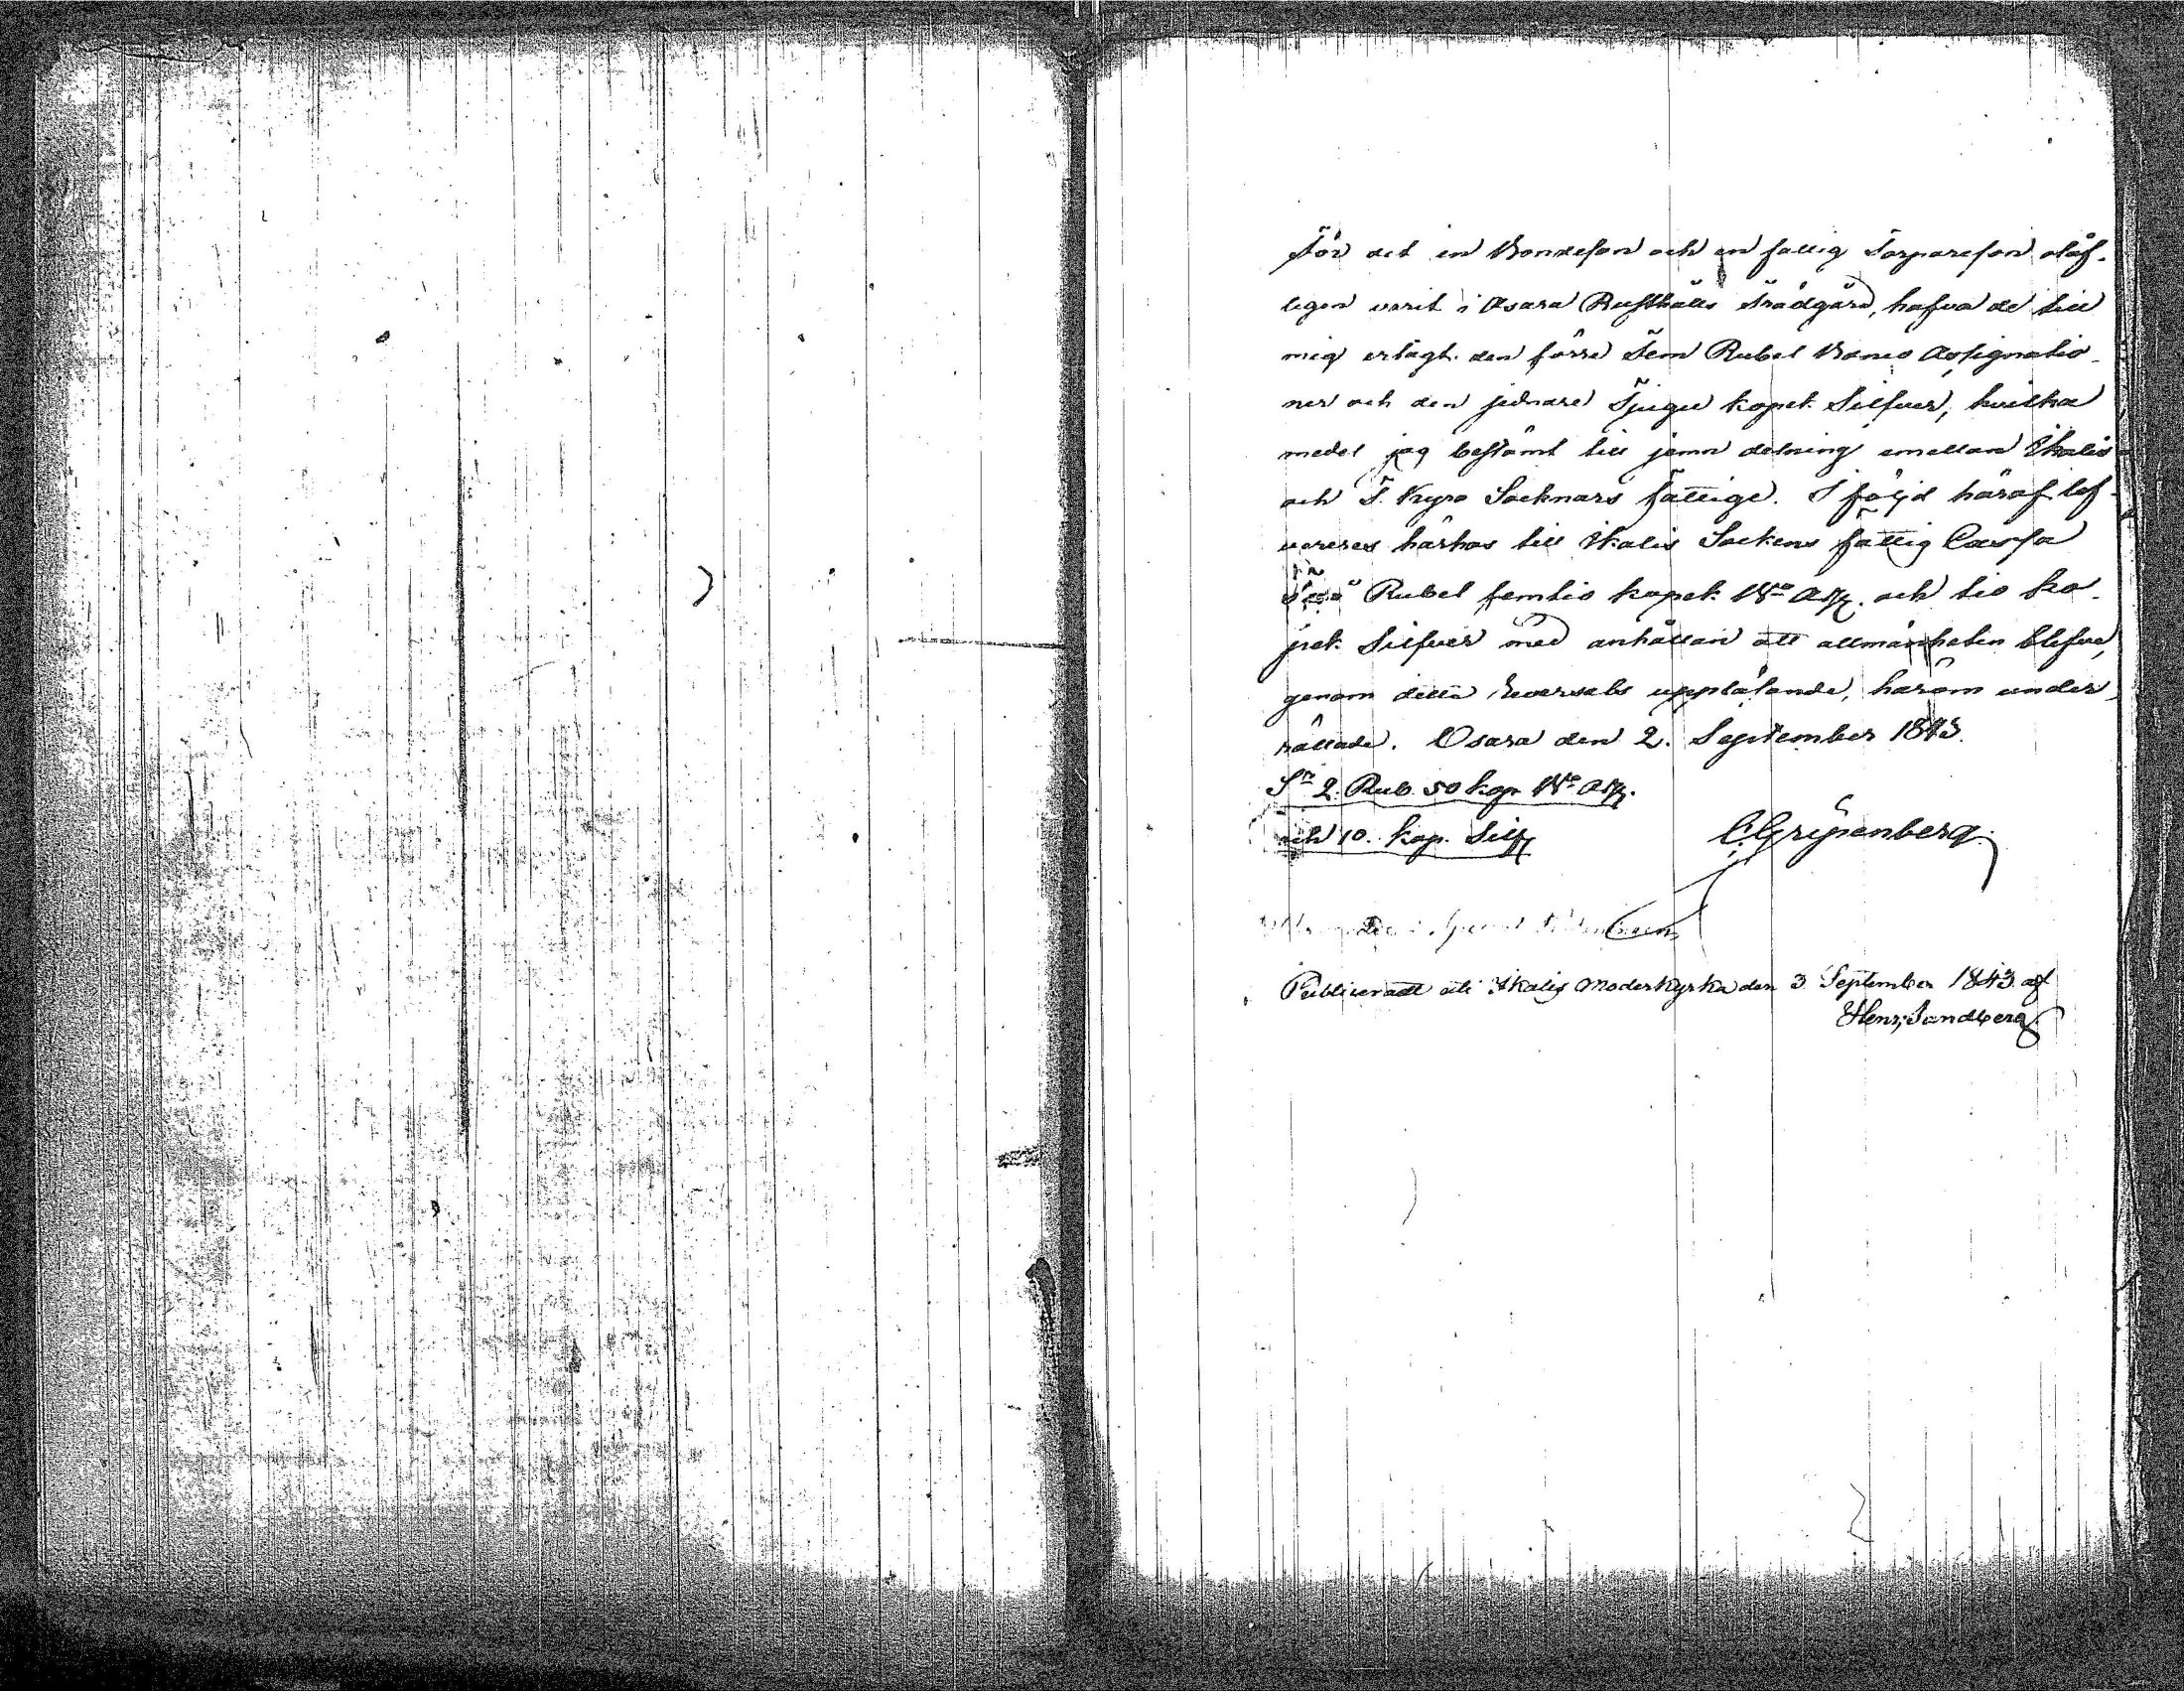 För det en Bondeson och en fattig Torpareson olåf-
ligen varit i Osara Rusthålls Trädgård, hafva de till
mig erlagt den förre Fem Rubel Banco Assignatio-
ner och den sednare Tjugu kopek Silfver, hvilka
medel jag bestämt till jemn delning emellan Ikalis
och T. Kyro Socknars fattige. I följd häraf lef-
vereres härhos till Ikalis Sockens fattig Cassa
Två Rubel femtio kopek B:co Ass. och tio ko-
pek Silfver med anhållan att allmänheten blefve,
genom detta Reversals uppläsande, härom under-
rättade. Osara den 2. September 1843.
S:a 2. Rub. 50 kop. B:co Ass.
och 10. kop. Silfr
C. Gripenberg.
Publiceradt uti Ikalis Moderkyrka den 3 September 1843. af
Henr: Sandberg